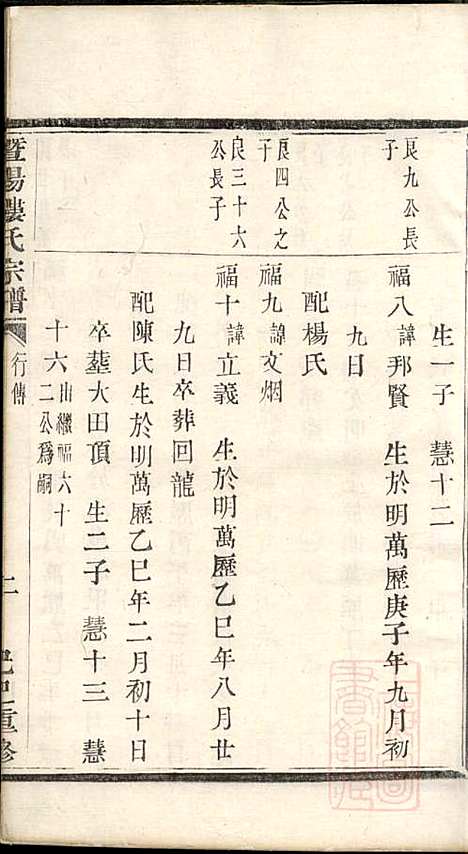 生一子　慧十二
良九公長
子
福八諱邦賢　生於明萬歷庚子年九月初
九日
配楊氏
良四公之
子
福九諱文烟
良三十六
公長子
福十諱立義　生於明萬歷乙巳年八月廿
九日卒葬回龍
配陳氏生於明萬歷乙巳年二月初十日
卒葬大田頂　生二子　慧十三　慧
十六出繼福六十
二公爲嗣
暨陽婁氏宗譜
行傳
己巳重修